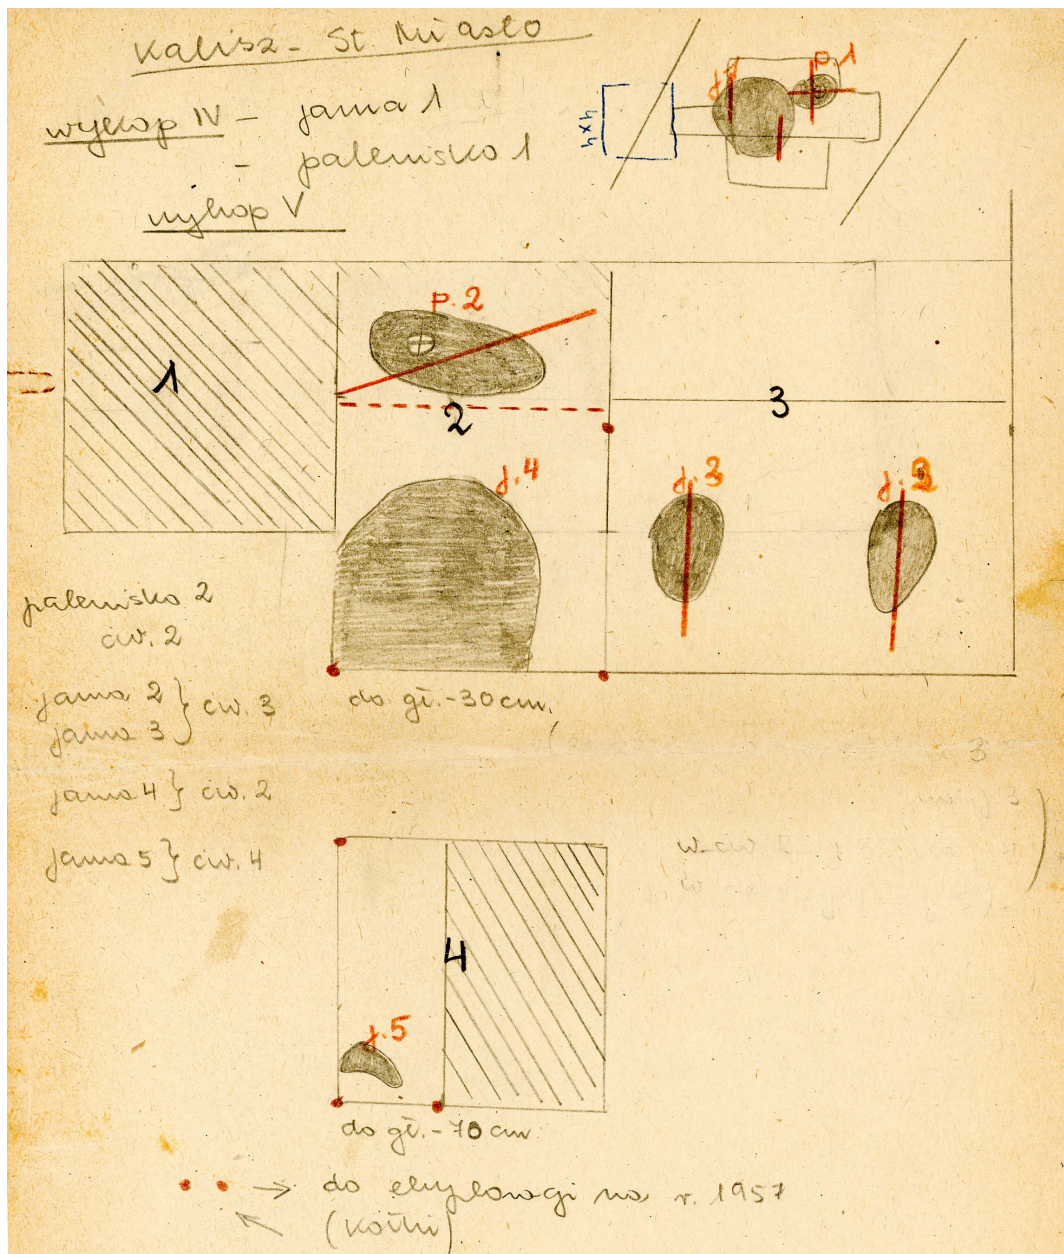 Kalisz - St. Miasto
wykop IV - jama 1
- palenisko 1
wykop V
j. 1
p. 1
4x4
p. 2
1
2
3
j. 4
j. 3
j. 2
palenisko 2
ćw. 2
jama 2 } ćw. 3
jama 3
jama 4 } ćw. 2
jama 5 } ćw. 4
do gł. -30 cm.
4
j. 5
do gł. -70 cm
→ do na r. 1957
(kołki)